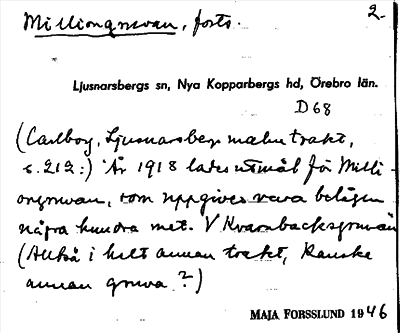 Milliongruvan, forts. 2.
Ljusnarsbergs sn, Nya Kopparbergs hd, Örebro län.
D 68
(Carlborg, Ljusnarsbergs malmtrakt,
s. 212:) "År 1918 lades utmål för Milli-
ongruvan, som uppgives vara belägen
några hundra met. V Kvarnbacksgruvan
(Alltså i helt annan trakt, kanske
annan gruva?)
MAJA FORSSLUND 1946